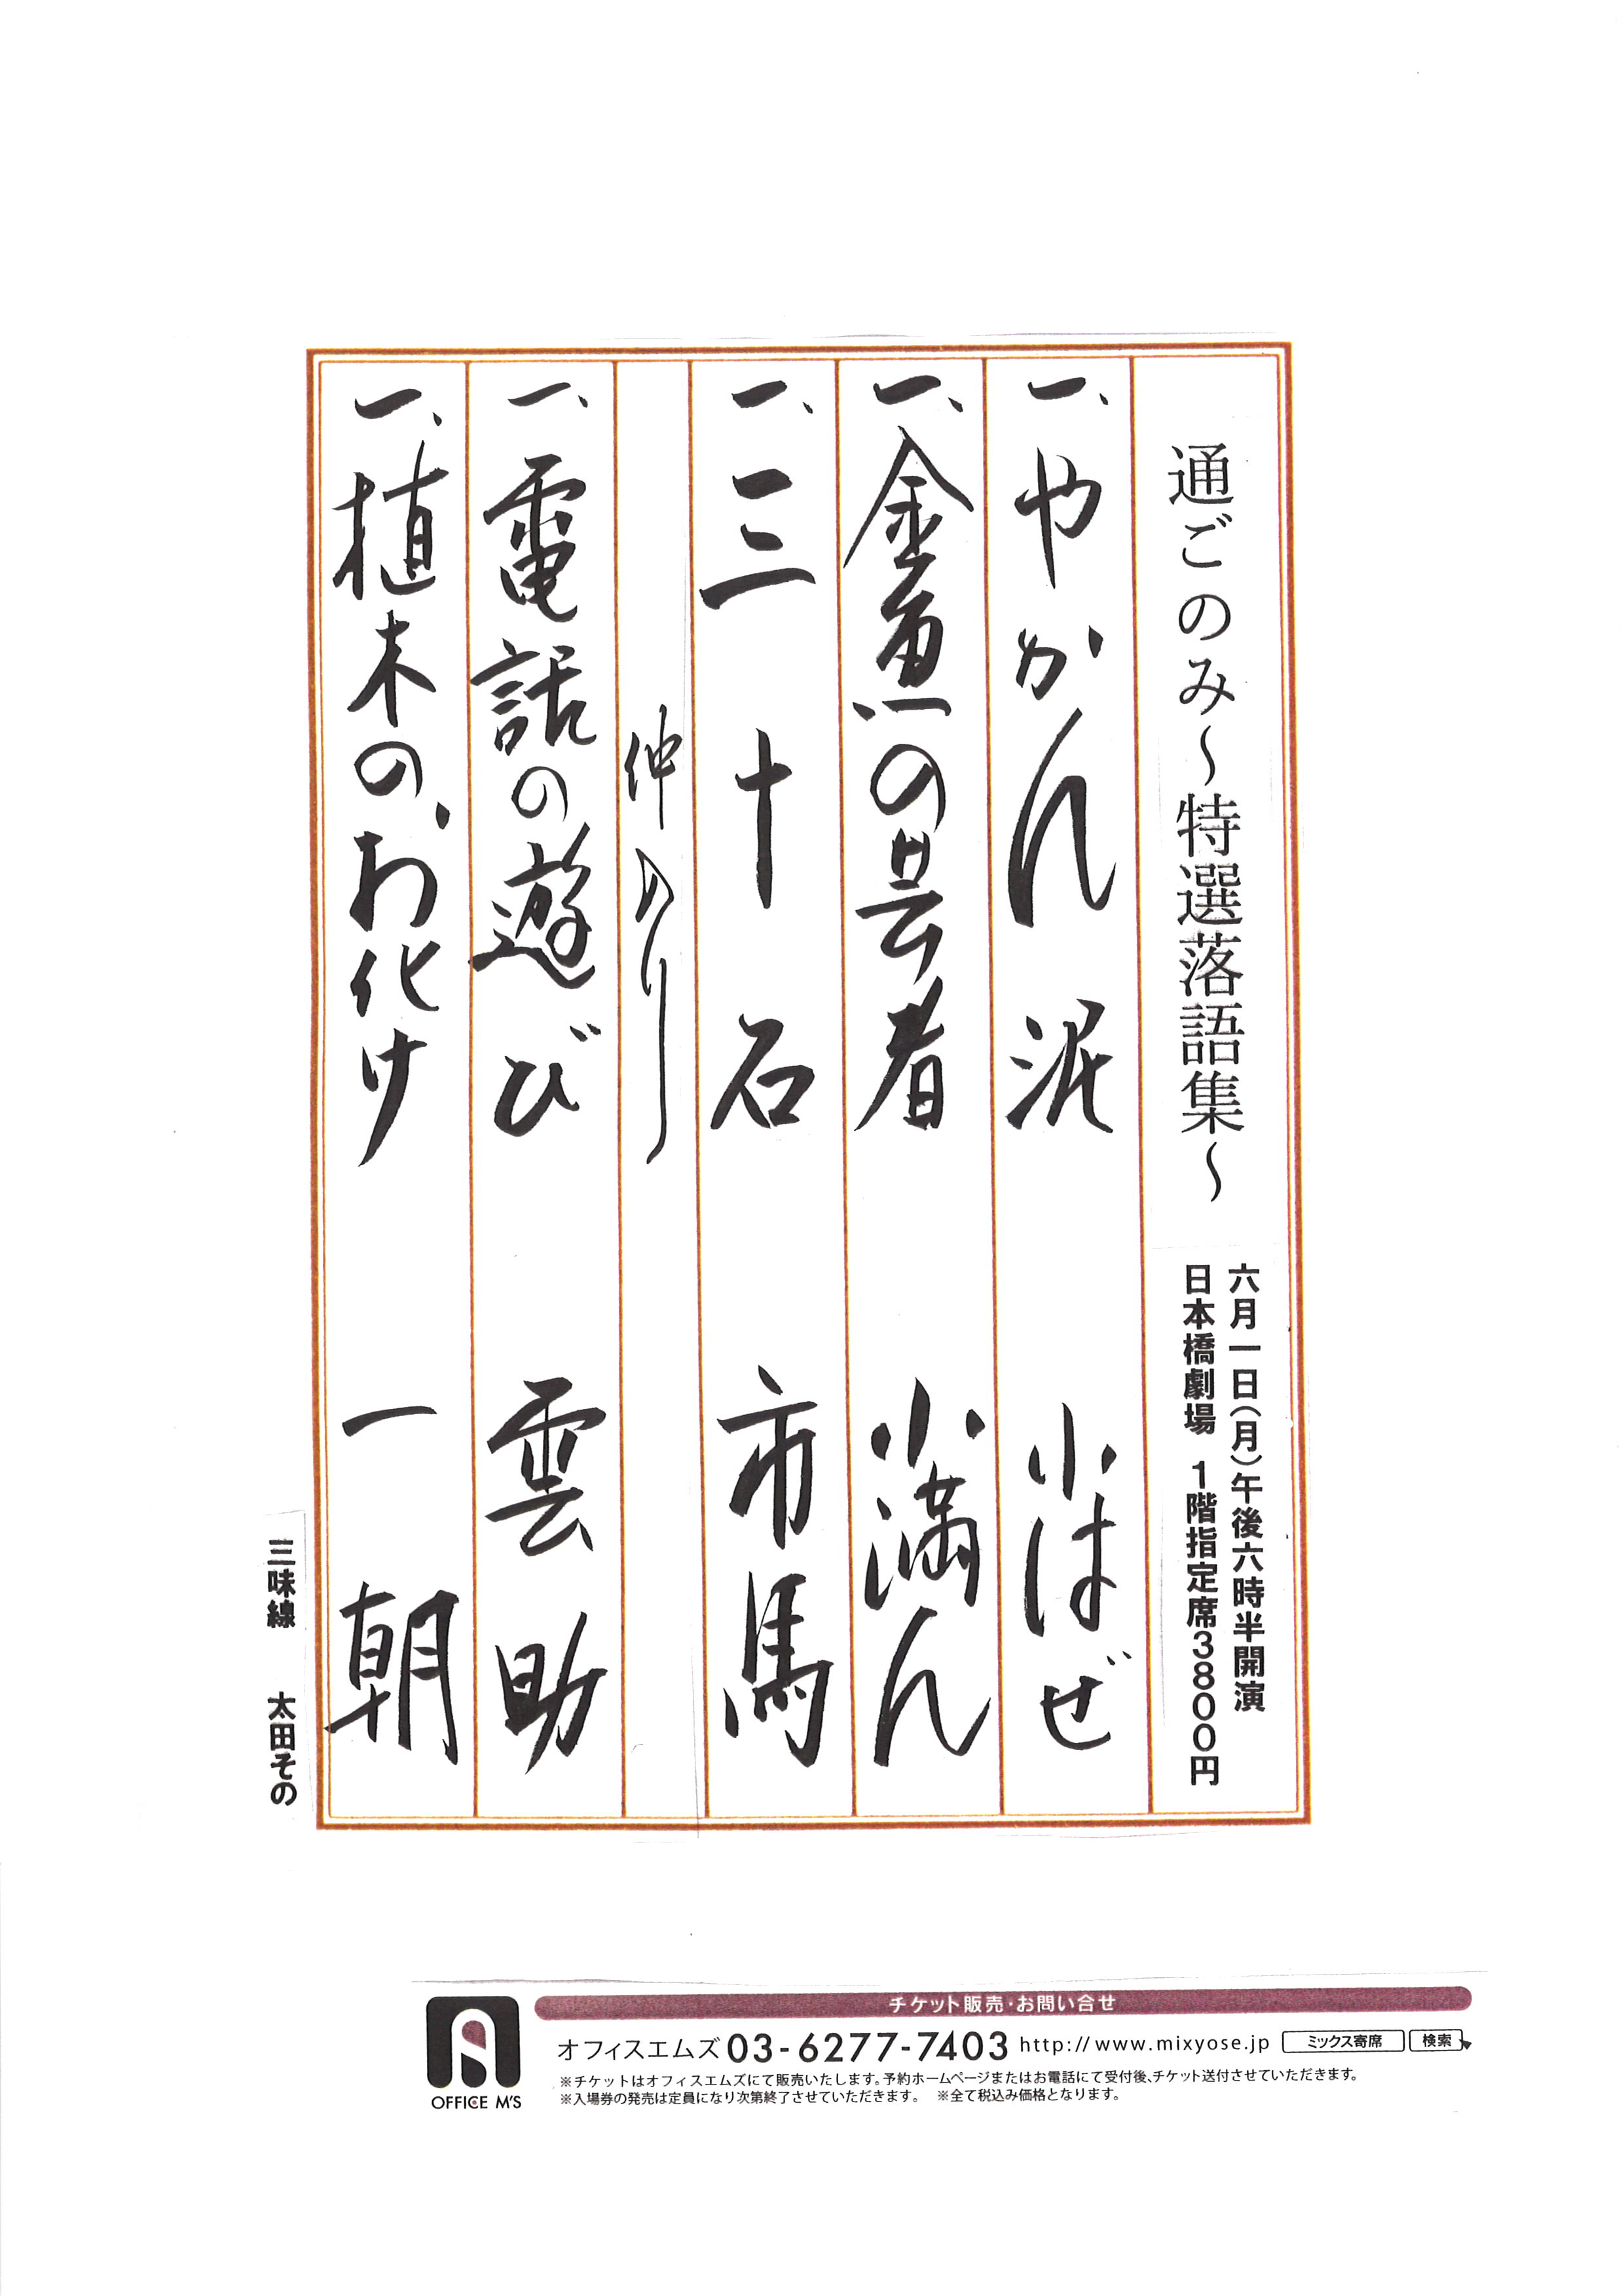 通ごのみ～特選落語集～
六月一日(月)午後六時半開演
日本橋劇場 1階指定席3800円
一、やかん泥 小はぜ
一、金魚の芸者 小満ん
一、三十石 市馬
仲入り
一、電話の遊び 雲助
一、植木のお化け 一朝
三味線 太田その
チケット販売・お問い合せ
オフィスエムズ 03-6277-7403 http://www.mixyose.jp ミックス寄席 検索
※チケットはオフィスエムズにて販売いたします。予約ホームページまたはお電話にて受付後、チケット送付させていただきます。
※入場券の発売は定員になり次第終了させていただきます。 ※全て税込み価格となります。
OFFICE M'S